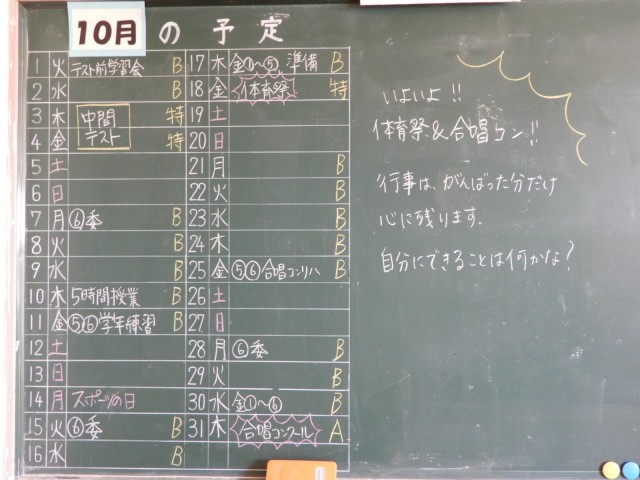 10月の予定
1 火 テスト前学習会 B
2 水 B
3 木 中間 特
4 金 テスト 特
5 土
6 日
7 月 ⑥委 B
8 火 B
9 水 B
10 木 5時間授業 B
11 金 ⑤⑥学年練習 B
12 土
13 日
14 月 スポーツの日
15 火 ⑥委 B
16 水 B
17 木 金①〜⑤ 準備 B
18 金 体育祭 特
19 土
20 日
21 月 B
22 火 B
23 水 B
24 木 B
25 金 ⑤⑥合唱コンリハ B
26 土
27 日
28 月 ⑥委 B
29 火 B
30 水 金①〜⑥ B
31 木 合唱コンクール A
いよいよ!!
体育祭&合唱コン!!
行事は、がんばった分だけ
心に残ります。
自分にできることは何かな?